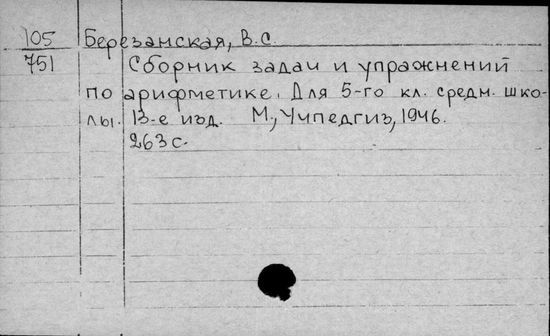 105 Березанская, В.С.
751 Сборник задач и упражнений
по арифметике. Для 5-го кл. средн. шко-
лы. 13-е изд. М., Учпедгиз, 1946.
263 с.